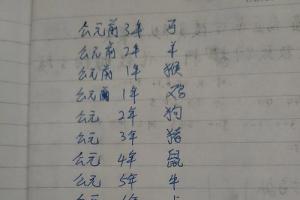 公元前 3年 马
公元前 2年 羊
公元前 1年 猴
公元 1年 鸡
公元 2年 狗
公元 3年 猪
公元 4年 鼠
公元 5年 牛